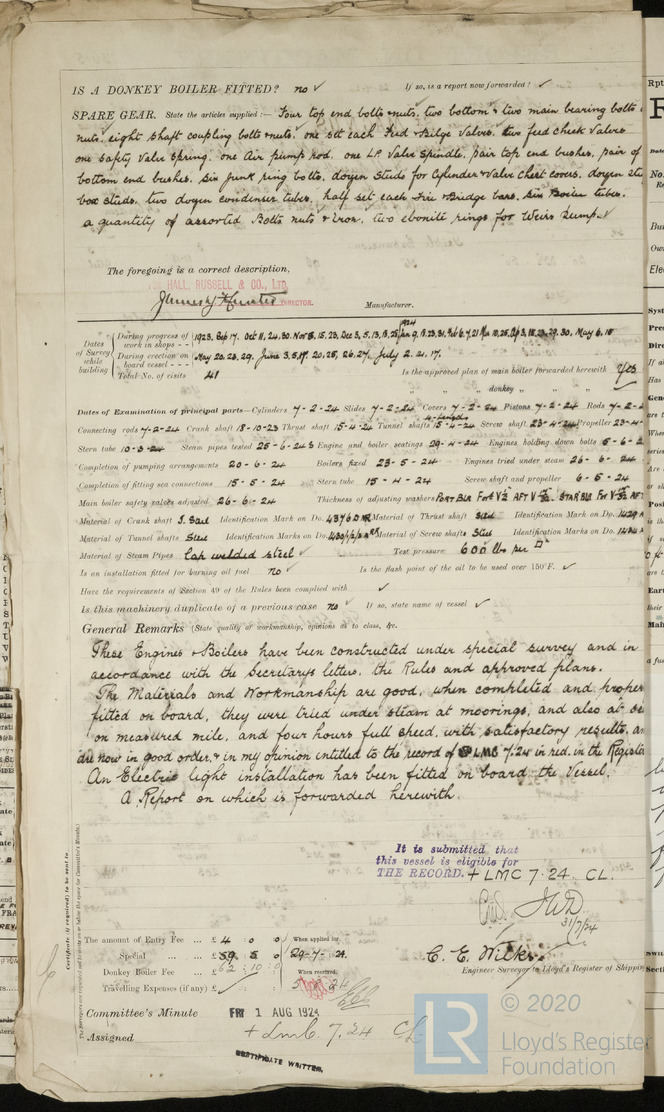 IS A DONKEY BOILER FITTED? no ✓ If so, is a report now forwarded? ✓
SPARE GEAR. State the articles supplied:— Four top end bolts & nuts, two bottom & two main bearing bolts &
nuts, eight shaft coupling bolts & nuts, one set each Feed & Bilge Valves, two feed check valves
one safety valve spring, one Air pump rod, one LP Valve Spindle, pair top end bushes, pair of
bottom end bushes, six junk ring bolts, dozen studs for cylinder & valve chest covers, dozen
box studs, two dozen condenser tubes, half set each Fire & Bridge bars, six Boiler tubes,
a quantity of assorted Bolts nuts & iron, two ebonite rings for Weirs Pump.
The foregoing is a correct description,
HALL, RUSSELL & CO., LTD.
James J Hunter DIRECTOR. Manufacturer.
Dates of Survey while building
During progress of work in shops - - 1923. Sep 17. Oct 11, 24, 30. Nov 15, 23, Dec 3, 5, 13, 1924
During erection on board vessel - - - May 20, 23, 29, June 3, 5, 20, 25, 26, 27, July 2, 4, 17.
Total No. of visits 41 Is the approved plan of main boiler forwarded herewith Yes
" " " donkey " " "
Dates of Examination of principal parts—Cylinders 7-2-24 Slides 7-2-24 Covers 7-2-24 Pistons 7-2-24 Rods 7-2-2
Connecting rods 7-2-24 Crank shaft 18-10-23 Thrust shaft 15-4-24 Tunnel shafts 15-4-24 Screw shaft 23-4-24 Propeller 23-4-
Stern tube 10-3-24 Steam pipes tested 25-6-24 Engine and boiler seatings 29-4-24 Engines holding down bolts 5-6-2
Completion of pumping arrangements 20-6-24 Boilers fixed 23-5-24 Engines tried under steam 26-6-24
Completion of fitting sea connections 15-5-24 Stern tube 15-4-24 Screw shaft and propeller 6-5-24
Main boiler safety valves adjusted 26-6-24 Thickness of adjusting washers PORT BLR
Material of Crank shaft S. Steel Identification Mark on Do. Material of Thrust shaft Steel Identification Mark on Do.
Material of Tunnel shafts Steel Identification Marks on Do. Material of Screw shafts Steel Identification Marks on Do.
Material of Steam Pipes Lap welded steel ✓ Test pressure 600 lbs per □"
Is an installation fitted for burning oil fuel no ✓ Is the flash point of the oil to be used over 150°F. ✓
Have the requirements of Section 49 of the Rules been complied with ✓
Is this machinery duplicate of a previous case no ✓ If so, state name of vessel ✓
General Remarks (State quality of workmanship, opinions as to class, &c.
These Engines & Boilers have been constructed under special survey and in
accordance with the Secretarys letters, the Rules and approved plans.
The Materials and Workmanship are good, when completed and proper
fitted on board, they were tried under steam at moorings, and also at se
on measured mile, and four hours full speed, with satisfactory results, an
are now in good order, & in my opinion entitled to the record of LMC 7.24 in red, in the Registe
An Electric light installation has been fitted on board the Vessel,
A Report on which is forwarded herewith.
It is submitted that
this vessel is eligible for
THE RECORD. + LMC 7.24. CL.
31/7/24
The amount of Entry Fee ... £ 4 : 0 : 0 When applied for,
Special ... £ 59 . 5 . 0 29-7-24.
Donkey Boiler Fee ... £ 62 : 10 : 0 When received,
Travelling Expenses (if any) £
C. E. Wilks
Engineer Surveyor to Lloyd's Register of Shipping
Committee's Minute FRI 1 AUG 1924
Assigned + LMC 7.24 CL
CERTIFICATE WRITTEN.
Certificate (if required) to be sent to
The Surveyors are requested not to write on or below the space for Committee's Minute.
LR © 2020
Lloyd's Register
Foundation